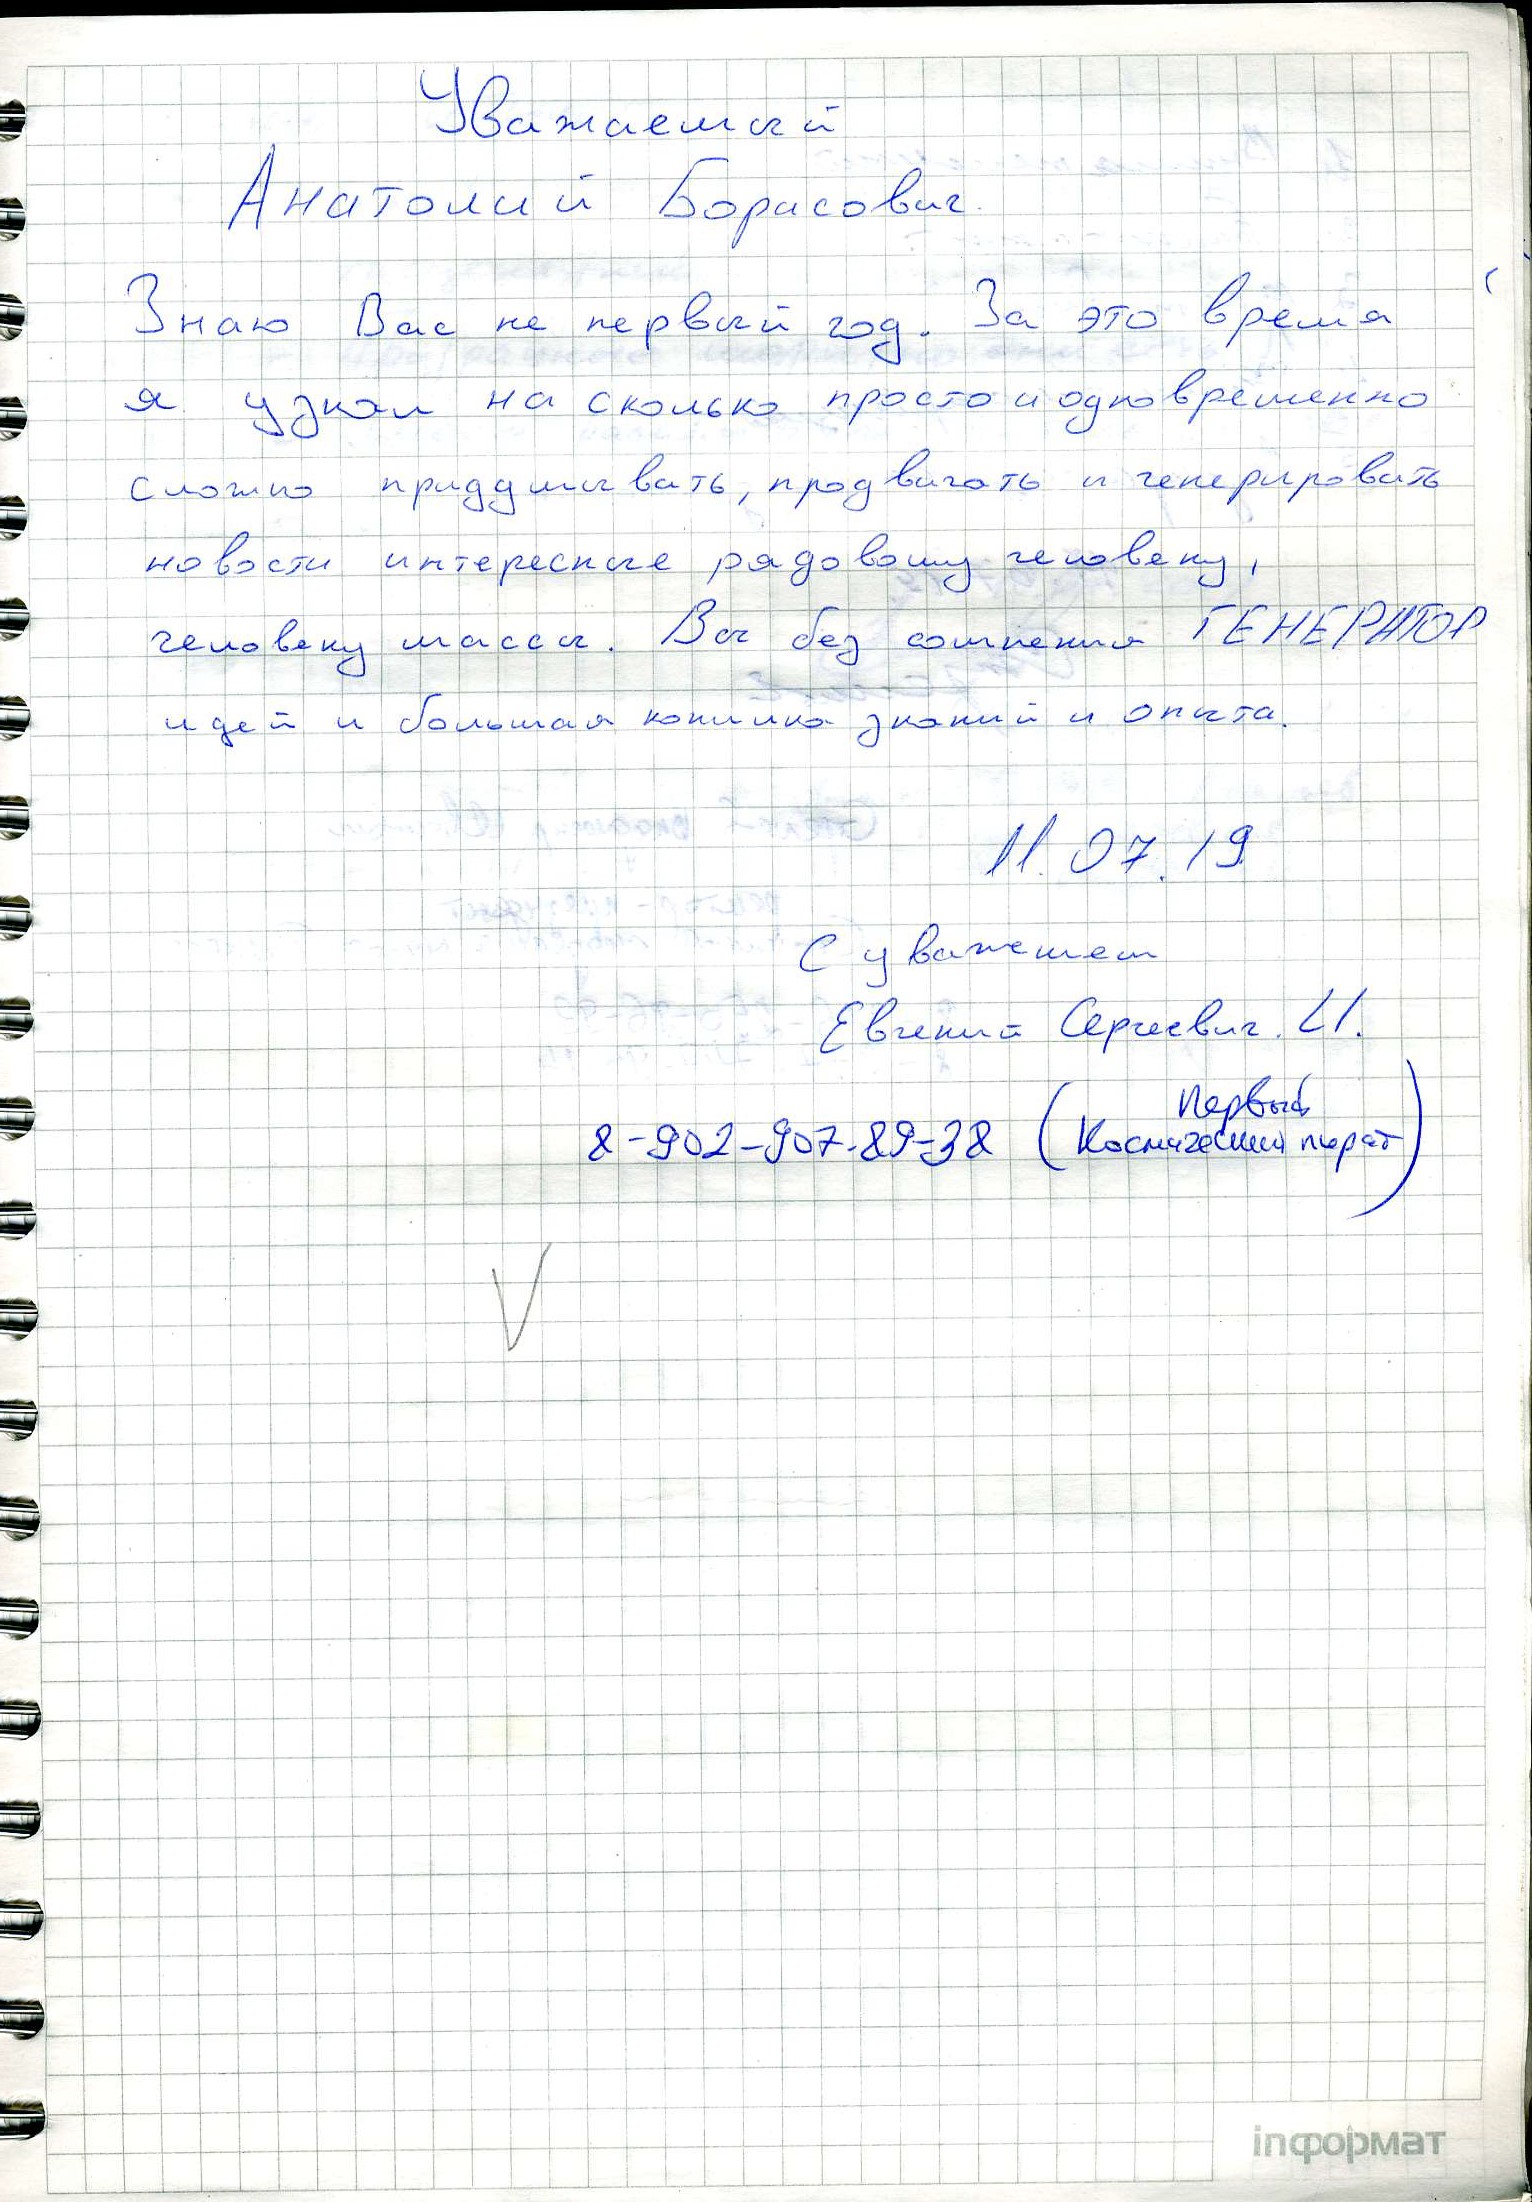 Уважаемый
Анатолий Борисович.
Знаю Вас не первый год. За это время
я узнал на сколько просто и одновременно
сложно придумывать, продвигать и генерировать
новости интересные рядовому человеку,
человеку массы. Вы без сомнения ГЕНЕРАТОР
идей и большая копилка знаний и опыта.
11.07.19
С уважением
Евгений Сергеевич. Ц.
8-902-907-89-38 (Первый
Космический пират)
inформат